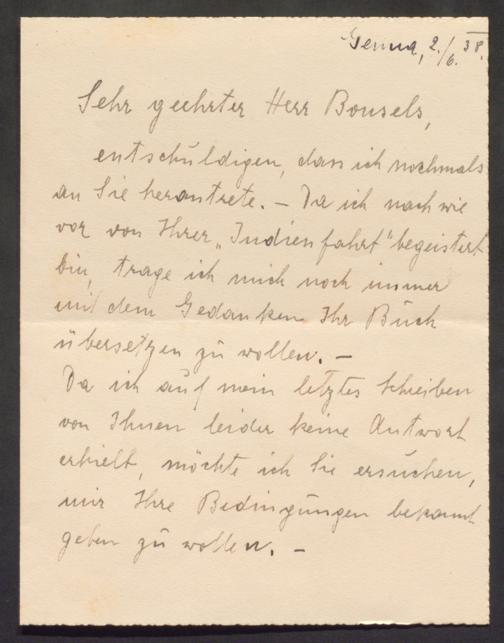 Genua, 2./6. 38.
Sehr geehrter Herr Bonsels,
entschuldigen, dass ich nochmals
an Sie herantrete. – Da ich nach wie
vor von Ihrer „Indienfahrt" begeistert
bin, trage ich mich noch immer
mit dem Gedanken Ihr Buch
übersetzen zu wollen. –
Da ich auf mein letztes Schreiben
von Ihnen leider keine Antwort
erhielt, möchte ich Sie ersuchen,
mir Ihre Bedingungen bekannt
geben zu wollen. –